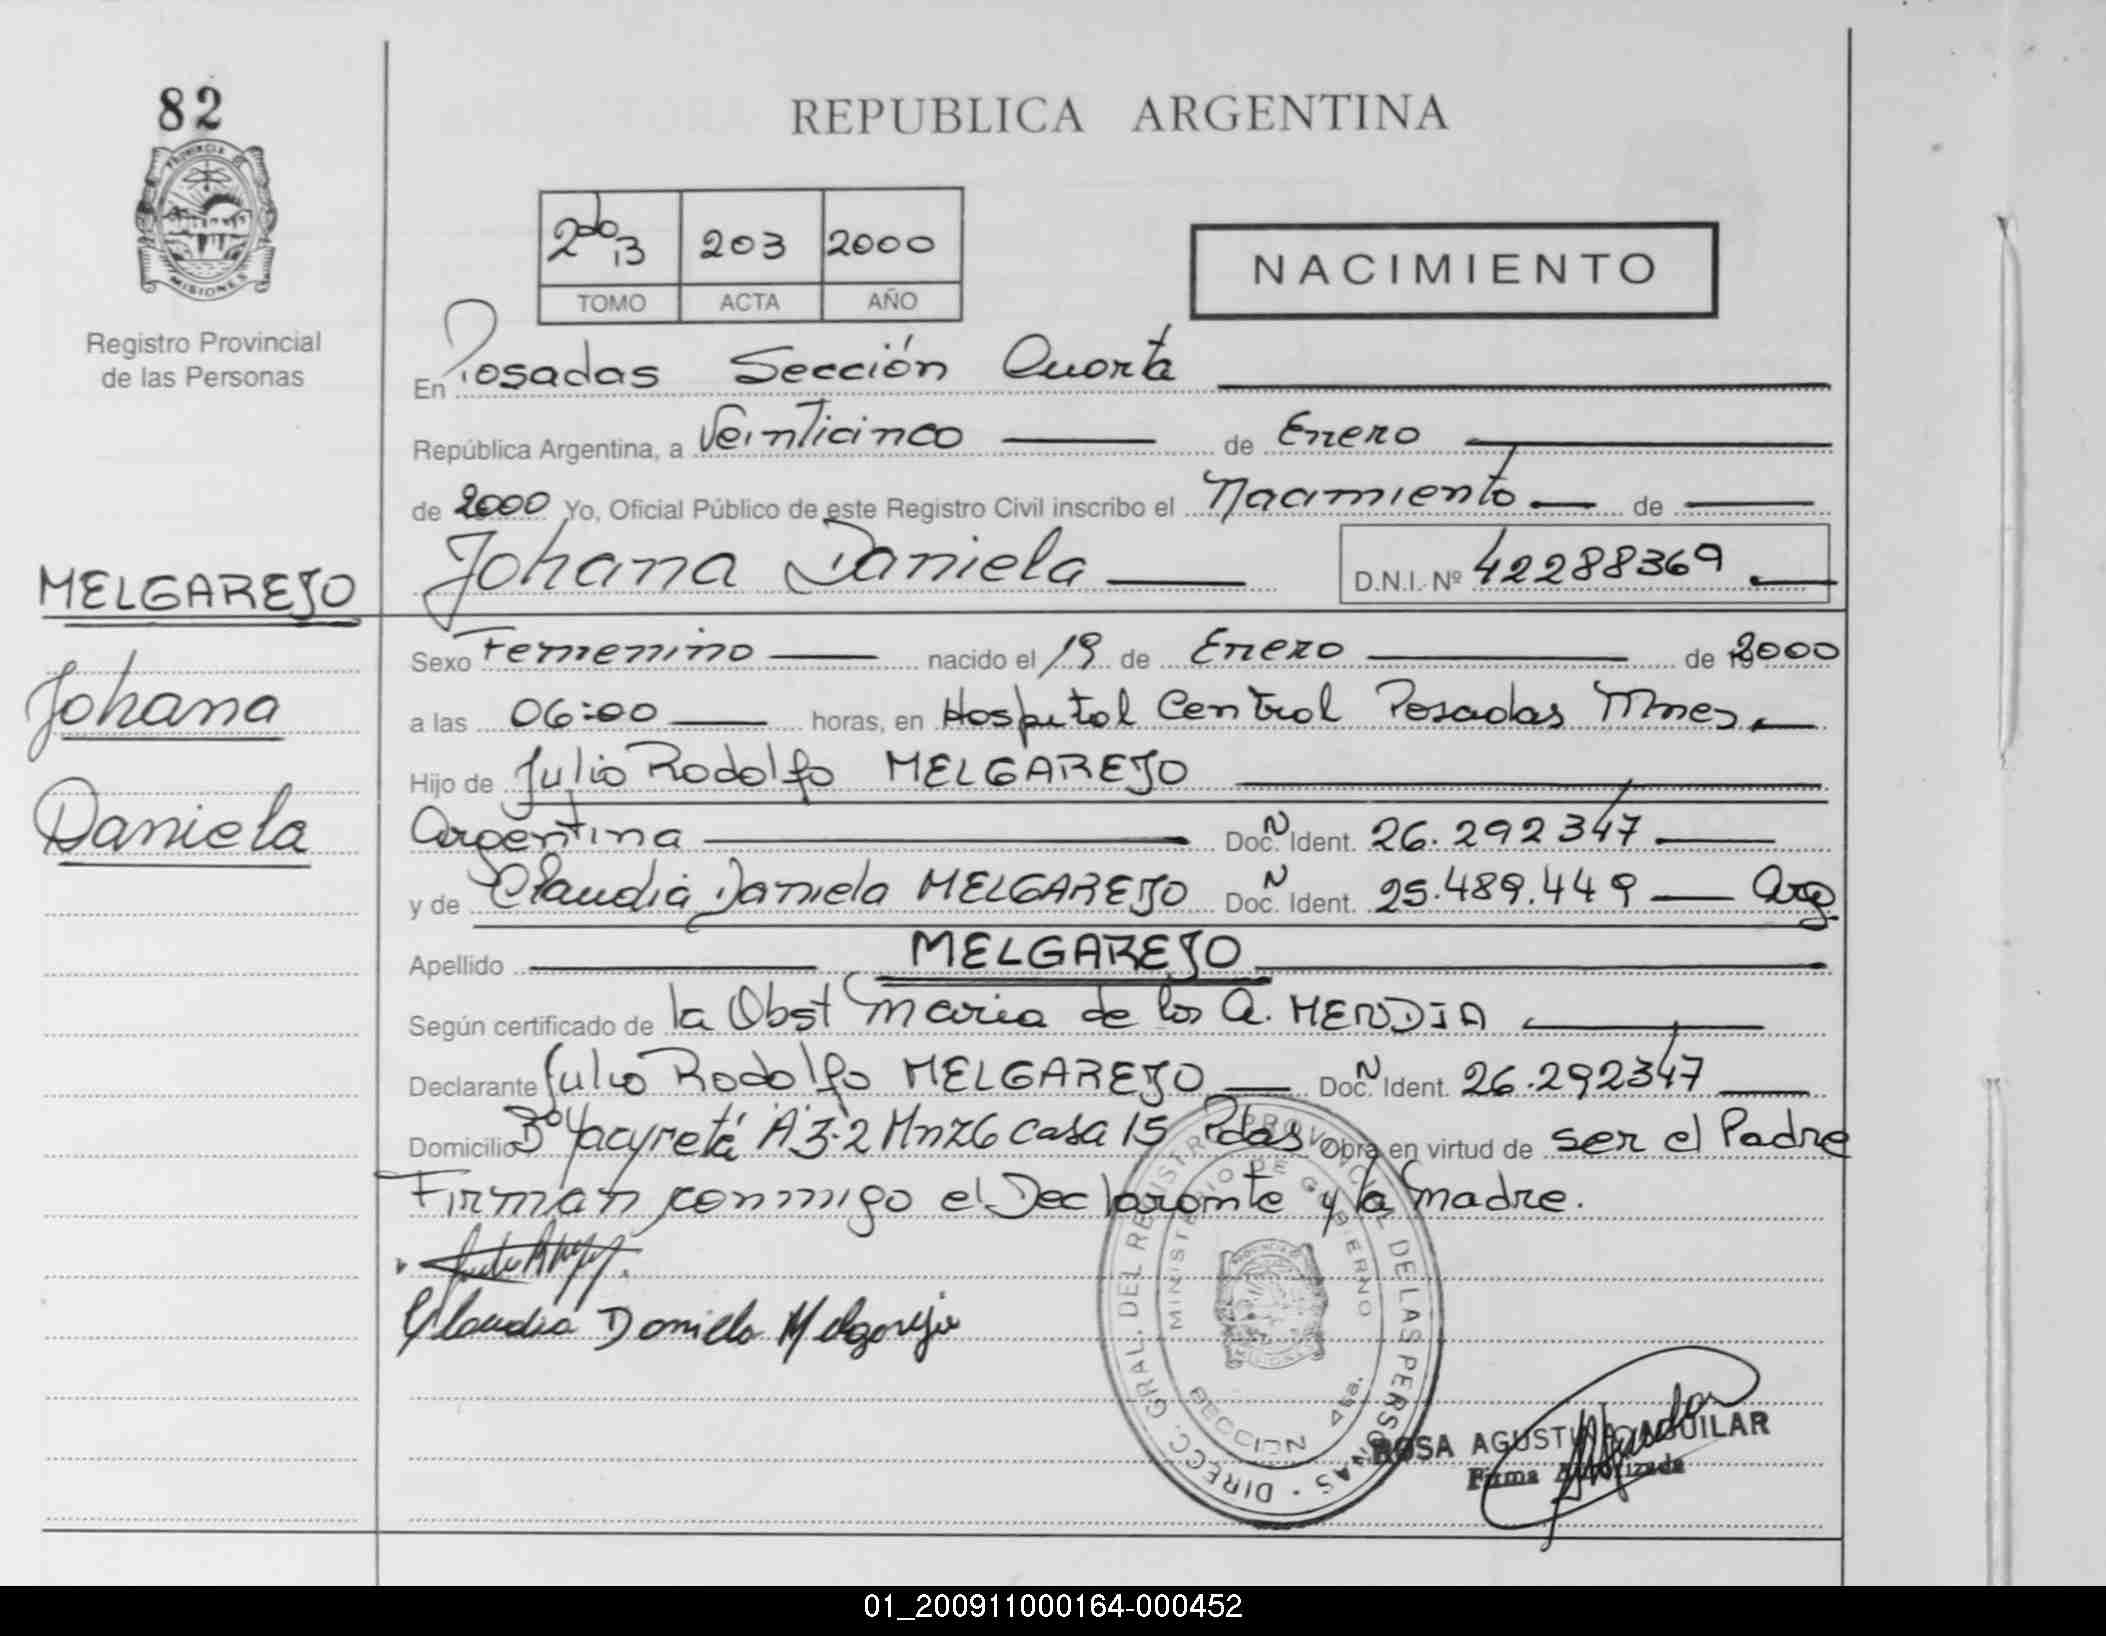 82
REPUBLICA ARGENTINA
PROVINCIA DE
MISIONES
2do 13 203 2000
TOMO ACTA AÑO
NACIMIENTO
Registro Provincial
de las Personas
En Posadas Sección Cuarta
República Argentina, a Veinticinco de Enero
de 2000 Yo, Oficial Público de este Registro Civil inscribo el Nacimiento de
Johana Daniela D.N.I. Nº 42288369
MELGAREJO
Johana
Daniela
Sexo Femenino nacido el 19 de Enero de 2000
a las 06:00 horas, en Hospital Central Posadas Mnes
Hijo de Julio Rodolfo MELGAREJO
Argentina Doc. N Ident. 26.292347
y de Claudia Daniela MELGAREJO Doc. N Ident. 25.489.449 Arg
Apellido MELGAREJO
Según certificado de la Obst Maria de los A. MENDIA
Declarante Julio Rodolfo MELGAREJO Doc. N Ident. 26.292347
Domicilio Bº Yacyretá A3-2 Mnz6 casa 15 Pdas Obra en virtud de ser el Padre
Firman conmigo el Declarante y la madre.
Claudia Daniela Melgarejo
DIRECC. GRAL. DEL REGISTRO PROVINCIAL DE LAS PERSONAS
MINISTERIO DE GOBIERNO
SECCION 4ta.
ROSA AGUSTINA AGUILAR
Firma Autorizada
01_200911000164-000452